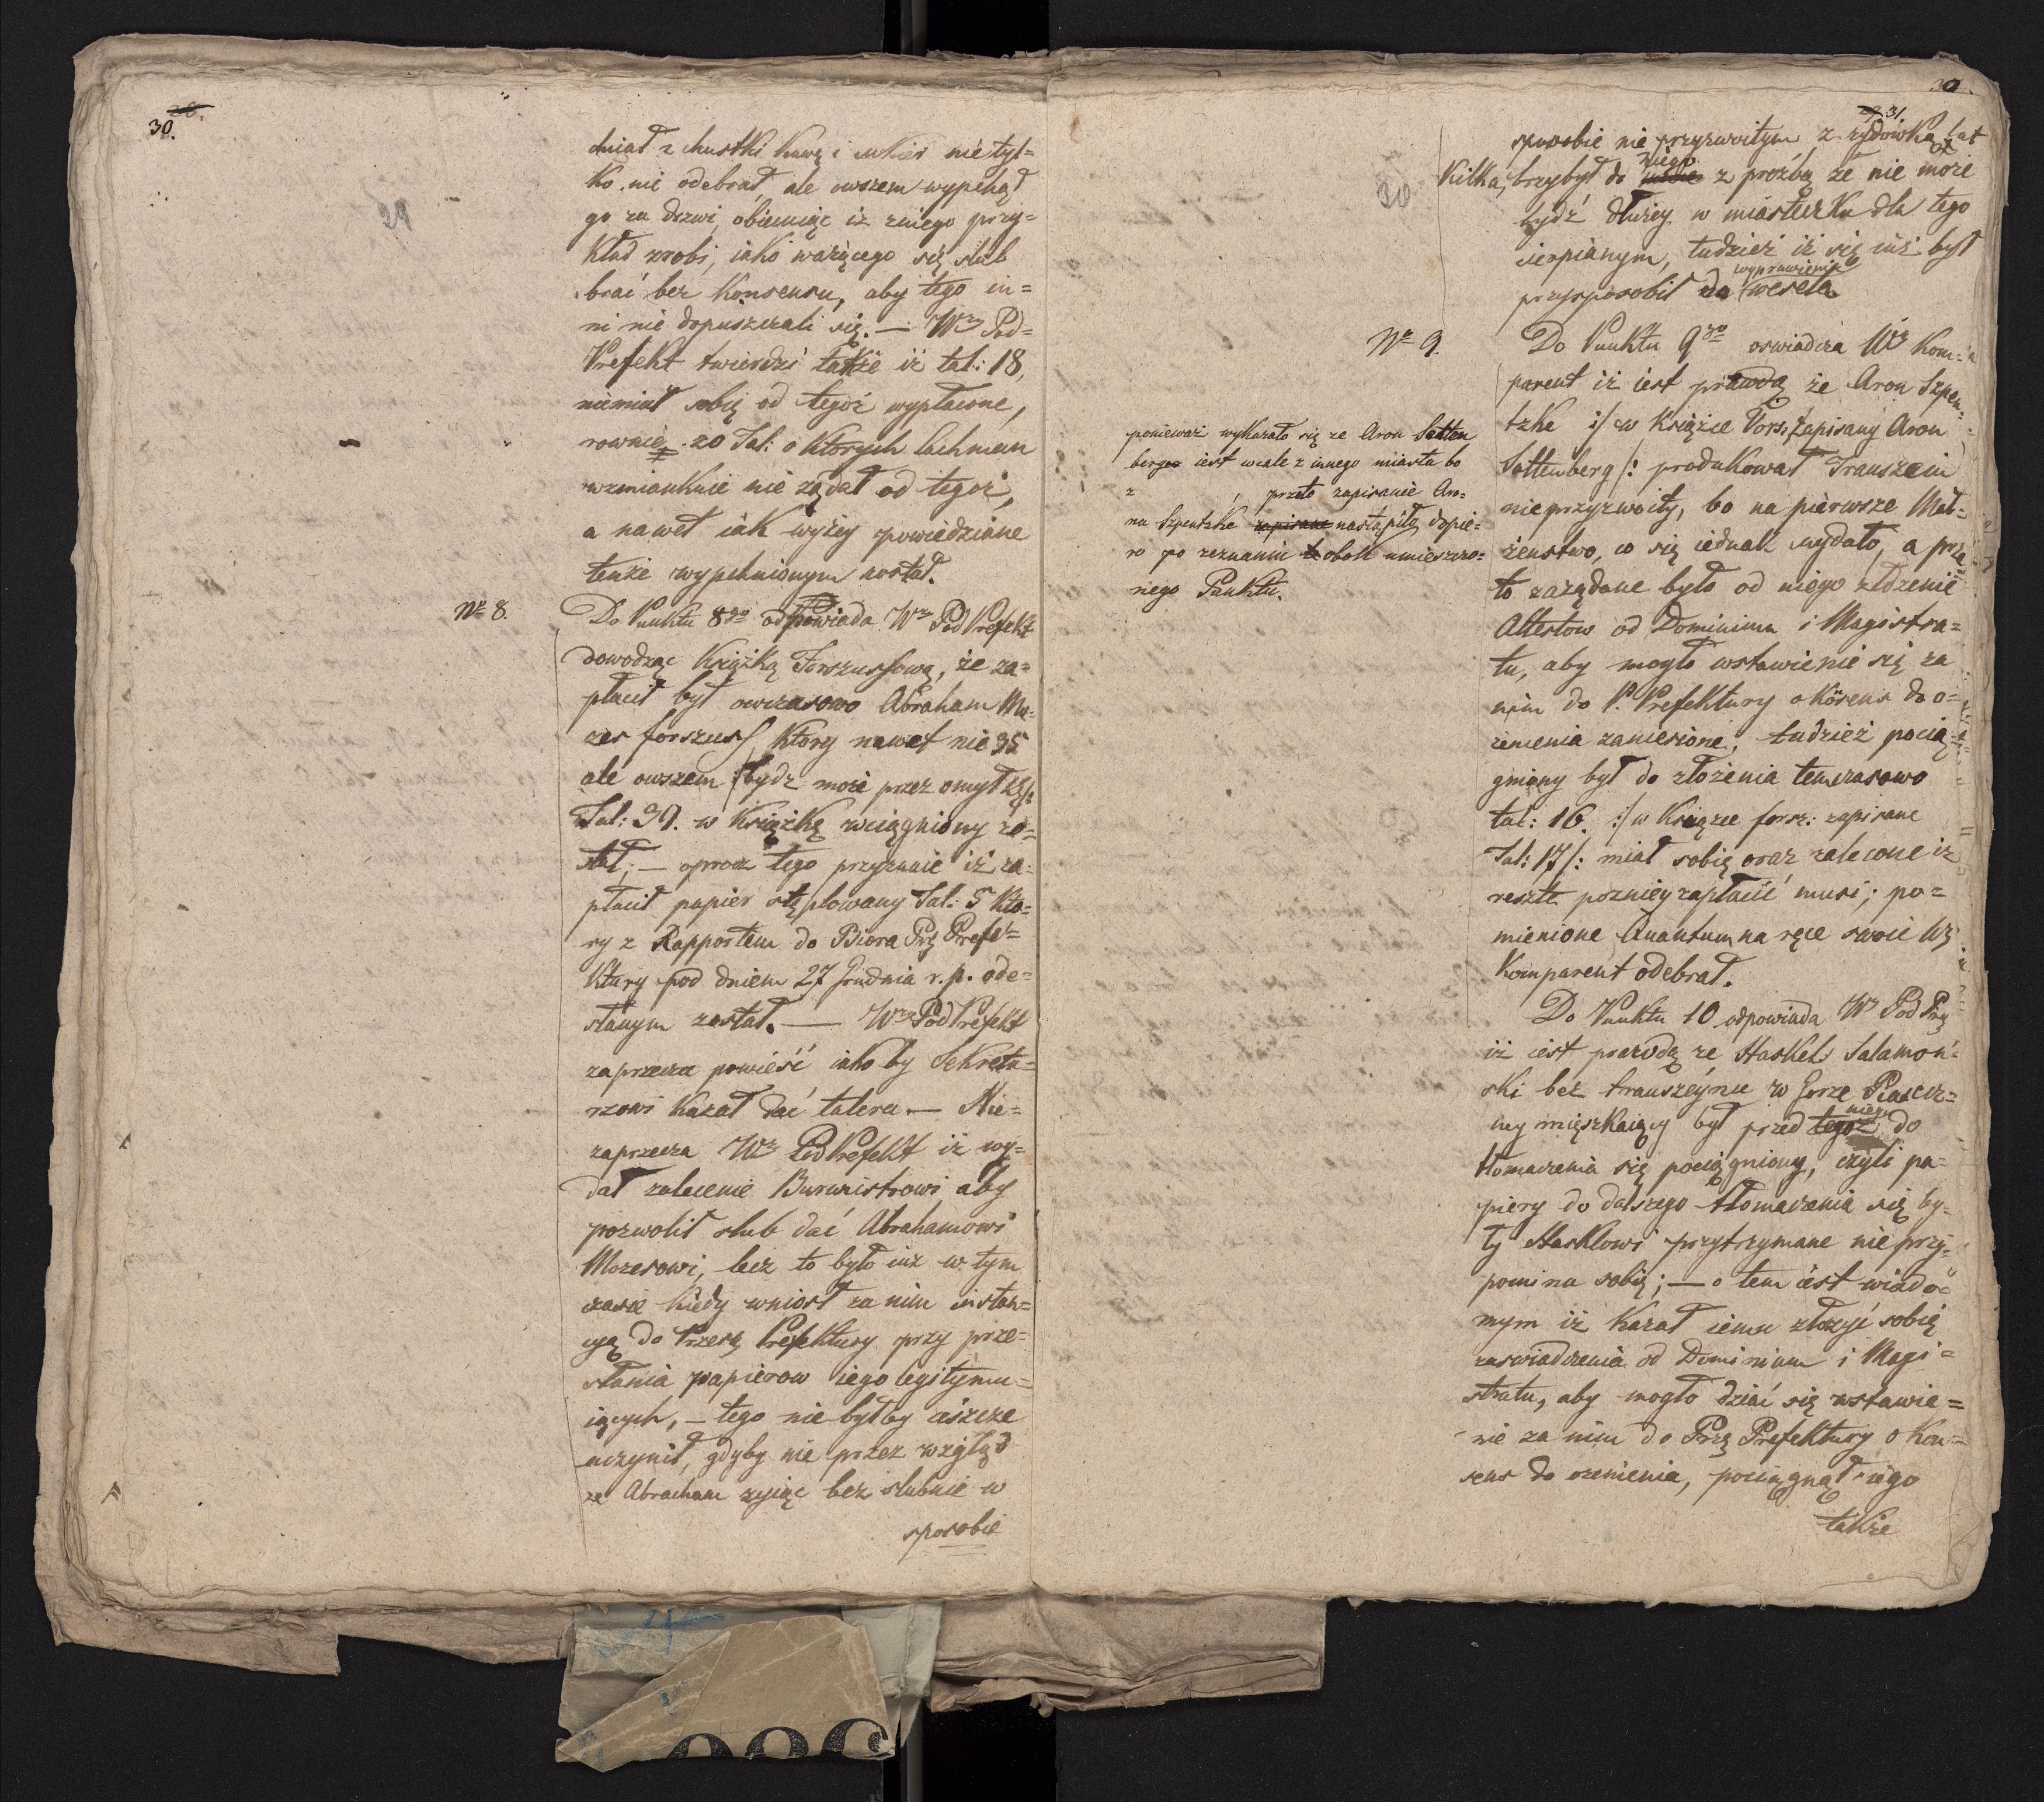 30.
29
dniał z chustki kawę i cukier nie tyl=
ko nie odebrał, ale owszem wypchął
go za drzwi, obiecuiąc iż zniego przy=
kład zrobi, iako ważącego się slub
brać bez konsensu, aby tego in=
ni nie dopuszczali się. — Wny Pod=
Prefekt twierdzi także iż tal: 18,
niemiał sobię od tegoż wypłacone,
rownie 20 Tal: o ktorych Lachman
wzmiankuie nie żądał od tegoż,
a nawet iak wyżey powiedziane
tenże wypchnionym został.
Nro 8.
Do Punktu 8go odpowiada Wny Pod Prefekt
dowodząc Książką Forszussową, że za=
płacił był owczasowo Abraham Mo=
zes forszuss, ktory nawet nie 35
ale owszem /: bydz może przez omyłkę :/
Tal: 39. w Książkę wciągniony zo=
stał; — oprocz tego przyznaie iż za=
płacił papier stęplowany Tal: 5 kto=
ry z Rapportem do Biora Prz Prefe=
ktury pod dniem 27 Grudnia r. p. ode=
słanym został. — Wny Pod Prefekt
zaprzecza powieść iako by Sekreta=
rzowi kazał dać talera — Nie=
zaprzecza Wny Pod Prefekt iż wy=
dał zalecenie Burmistrowi aby
pozwolił slub dać Abrahamowi
Mozesowi, lecz to było iuż w tym
czasie kiedy wniosł za nim instan=
cyą do Przes Prefektury przy prze=
słania papierow iego legitymu=
iących, — tego nie byłby ieszcze
uczynił, gdyby nie przez wzgląd
że Abracham zyiąc bez slubnie w
sposobie
30
31.
sposobie nie przyzwoitym z zydowką lat
kilka, przybył do niego z prożbą że nie może
bydź dłużey w miasteczku dla tego
cierpianym, tudzież iż się iuż był
przysposobił do wyprawienia wesela
Nro 9.
Do Punktu 9go oswiadcza Wny Kom=
parent iż iest prawdą że Aron Szpen=
tzke :/ w Książce Fors: zapisany Aron
Sottenberg /: produkował Trauszein
nieprzyzwoity, bo na pierwsze Mał=
żeństwo, co się iednak wydało, a prze=
to zażądane było od niego złożenie
Attestow od Dominium i Magistra=
tu, aby mogło wstawienie się za
nim do P. Prefektury o Konsens do o=
żenienia zaniesione, tudzież pocią=
gniony był do złożenia temczasowo
tal: 16. :/ w Książce forsz: zapisane
Tal: 17 /: miał sobię oraz zalecone iż
resztę poznieyzapłacić musi; po=
mienione Quantum na ręce swoie Wz
Komparent odebrał.
ponieważ wykazało się ze Aron Sotten
berger iest wcale z innego miasta bo
z , przeto zapisanie Aro=
na Szpentzke zapisane nastąpiło dopie=
ro po zeznaniu obok umieszczo=
nego Punktu.
Do Punktu 10 odpowiada Wny Pod Prz
iż iest prawdą ze Haskel Salamoń=
ski bez trauszeynu w Gorze Piasecz=
ney mięszkaiący był przed niego do
tłomaczenia się pociągniony, czyli pa=
piery do dalszego tłomaczenia się by=
ły Hasklowi przytrzymane nie przy=
pomina sobię; — o tem iest wiado=
mym iż kazał iemu złożyć sobię
zaswiadczenia od Dominium i Magi=
stratu, aby mogło dziać się wstawie=
nie za nim do Prz Prefektury o Kon=
sens do ożenienia, pociągnął iego
także